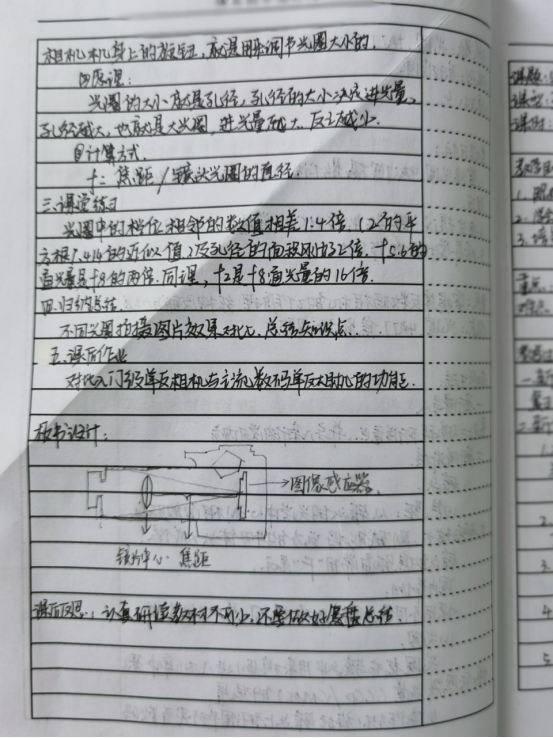 相机机身上的旋钮，就是用来调节光圈大小的.
④原理：
光圈的大小就是孔径，孔径的大小决定进光量，
孔径越大，也就是大光圈，进光量越大，反之越小.
⑤计算方式.
f = 焦距 / 镜头光圈的直径.
三.课堂练习
光圈中的档位相邻的数值相差1.4倍.（2的平
方根1.414的近似值）及孔径的面积刚好2倍. f5.6的
通光量是f8的两倍. 同理，f2是f8通光量的16倍.
四.归纳总结.
不同光圈拍摄图片效果对比，总结知识点.
五.课后作业
对比入门级单反相机与主流数码单反相机的功能.
板书设计：
→图像感应器.
镜片中心 焦距
课后反思：认真研读教材不可少，还要做好复盘总结.
课题：
课型：
课时：
1.
2.
3.
重点
一.
二.
1.
2.
3.
4
5